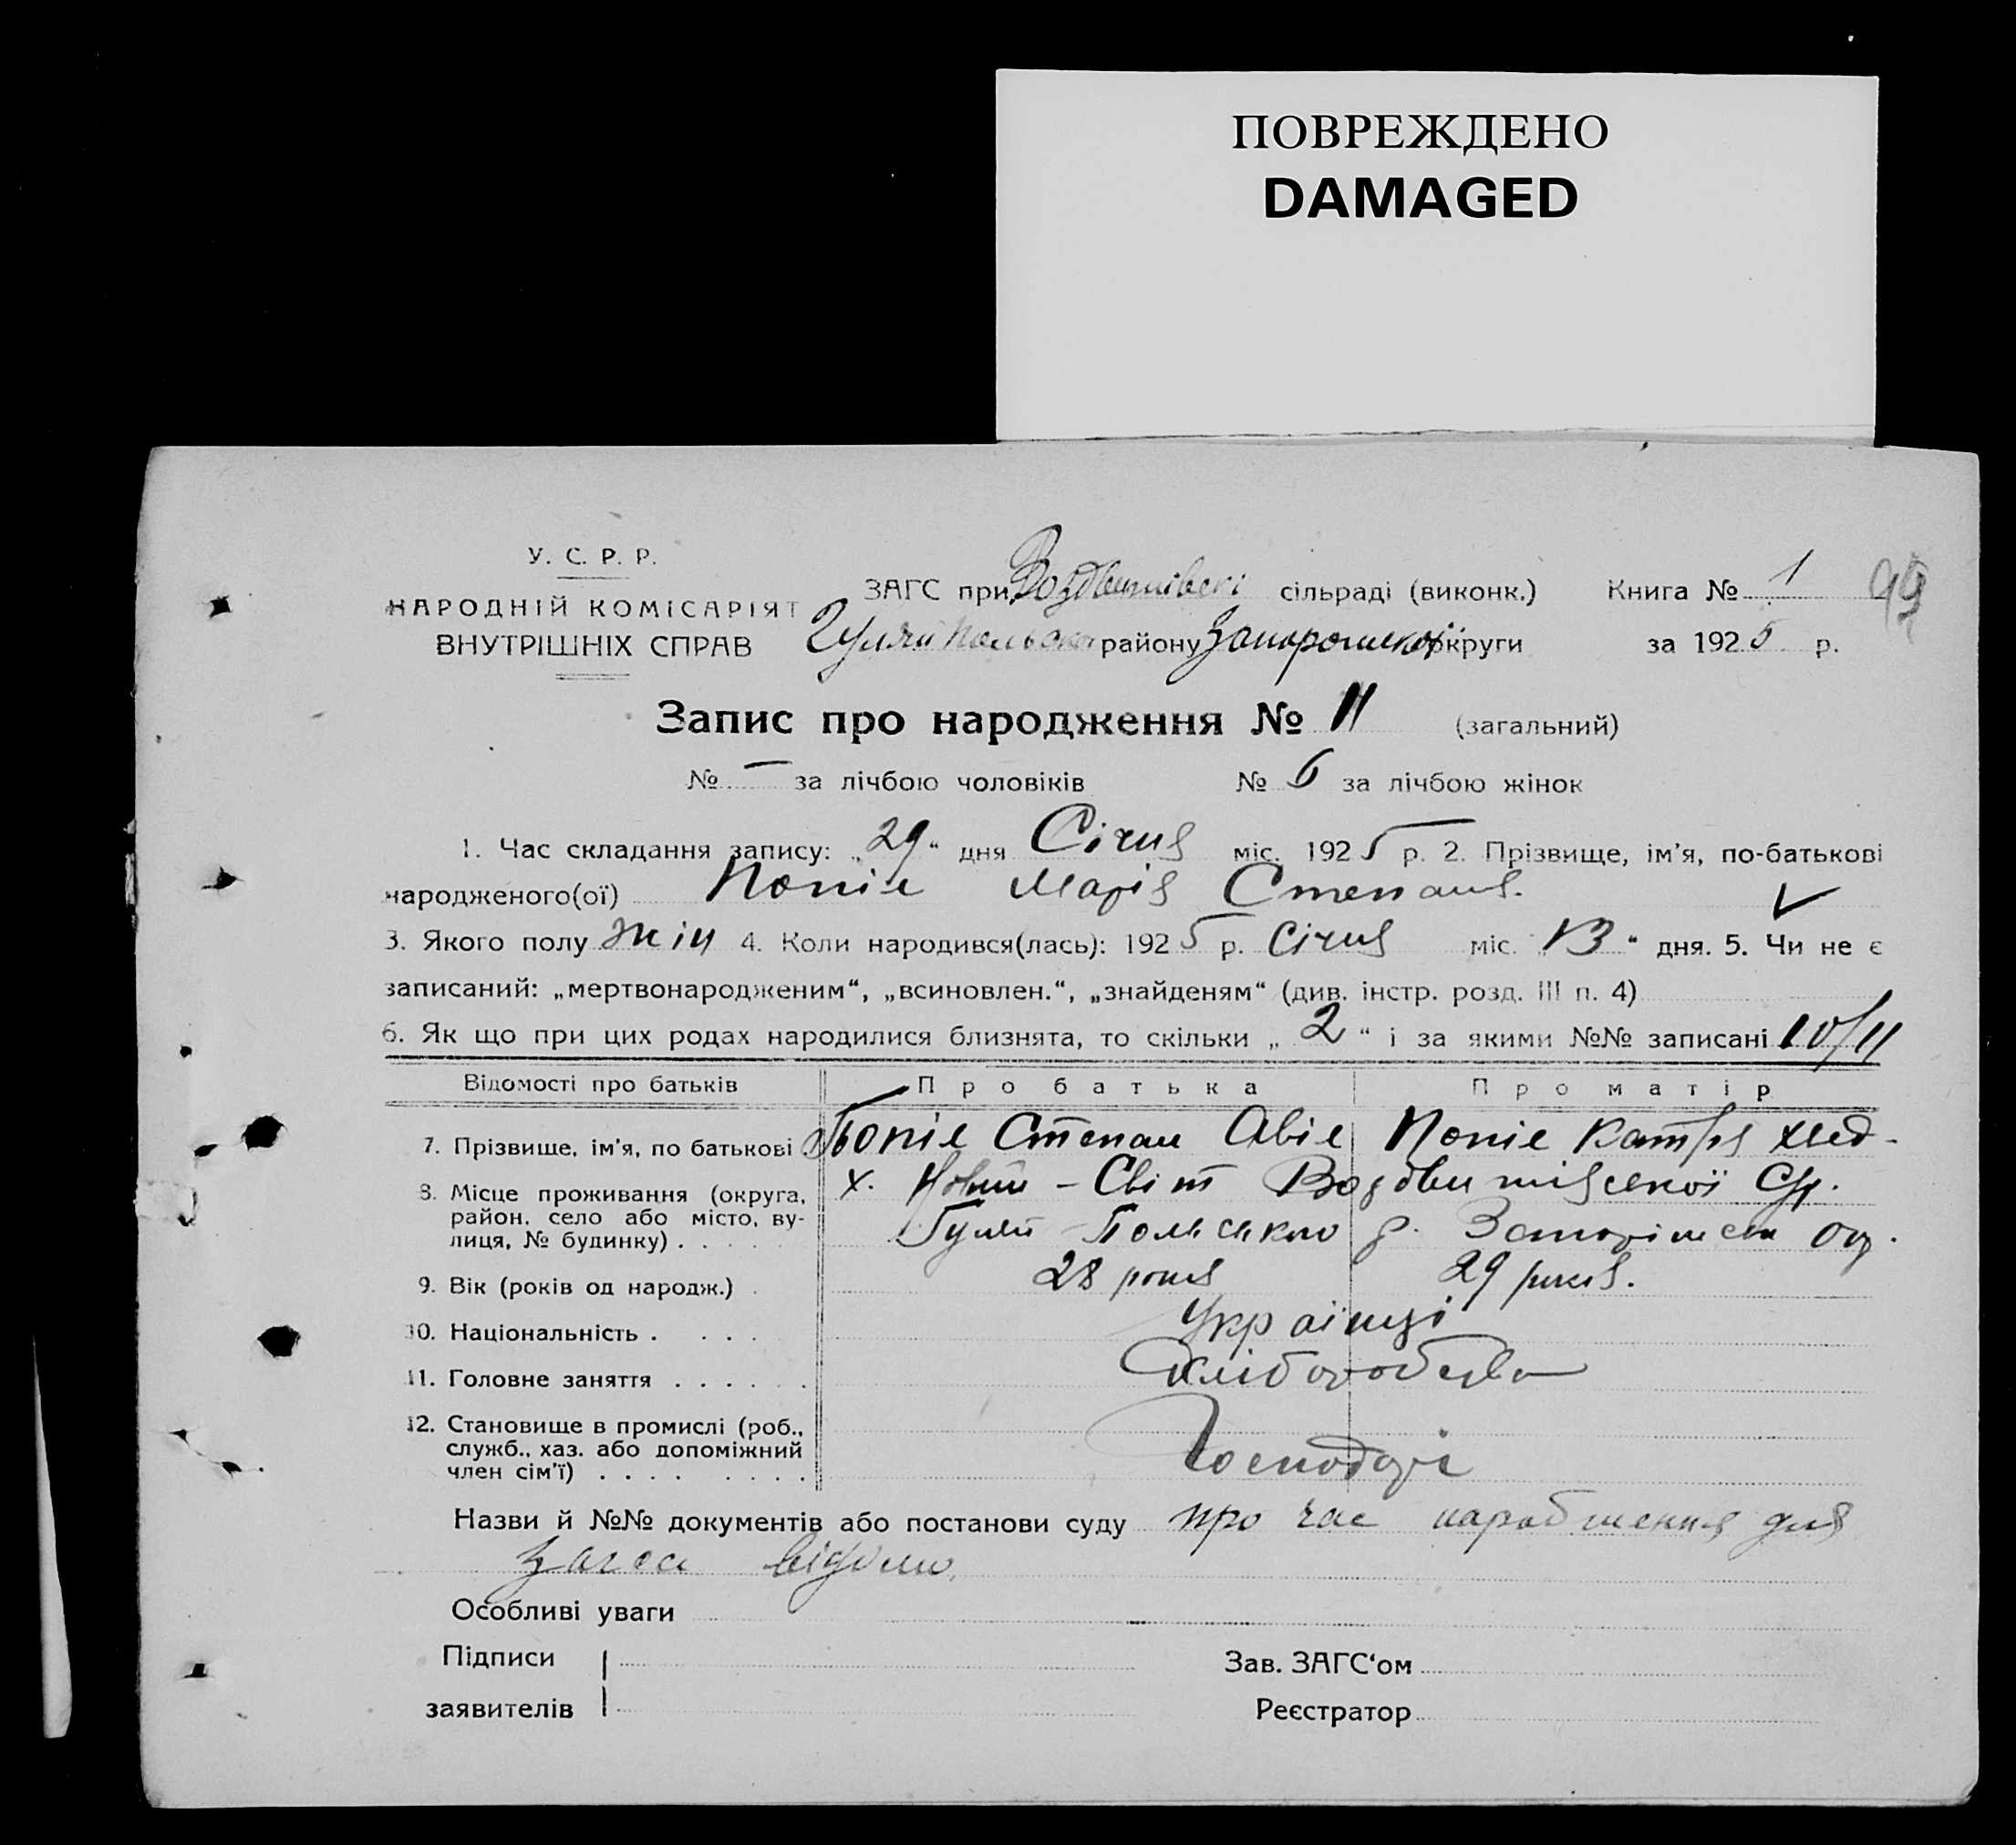 ПОВРЕЖДЕНО
DAMAGED
У. С. Р. Р.
НАРОДНІЙ КОМІСАРІЯТ
ВНУТРІШНІХ СПРАВ
ЗАГС при Воздвишівскі сільраді (виконк.) Книга № 1 99
Гуляй Польсько району Запорошської округи за 1925 р.
Запис про народження № 11 (загальний)
№ — за лічбою чоловіків № 6 за лічбою жінок
1. Час складання запису: „29“ дня Січня міс. 1925 р. 2. Прізвище, ім'я, по-батькові
народженого(ої) Копіє Марія Степанів.
3. Якого полу жін 4. Коли народився(лась): 1925 р. Січня міс. 13 “ дня. 5. Чи не є
записаний: „мертвонародженим“, „всиновлен.“, „знайденям“ (див. інстр. розд. III п. 4)
6. Як що при цих родах народилися близнята, то скільки „ 2 “ і за якими №№ записані 10/11
Відомості про батьків Про батька Про матір
7. Прізвище, ім'я, по батькові Степан
8. Місце проживання (округа, х. Новий - Світ
район, село або місто, ву-
лиця, № будинку) . . . . Гуляй - Польсько р.
9. Вік (років од народж.) . 28 років 29 років.
10. Національність . . . . Українці
11. Головне заняття . . . . . . Хліборобства
12. Становище в промислі (роб.,
служб., хаз. або допоміжний
член сім'ї) . . . . . . . . Господарі
Назви й №№ документів або постанови суду про час народження для
загса відомо.
Особливі уваги
Підписи
Зав. ЗАГС‘ом
заявителів
Реєстратор